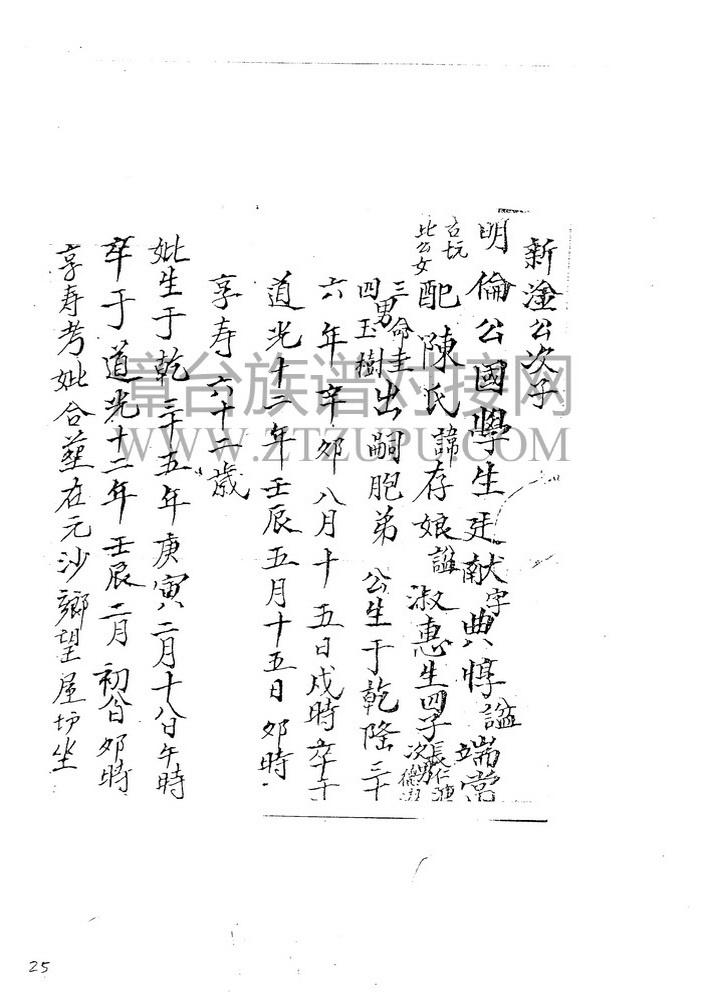 新淦公次子
明倫公國學生廷献字典惇諡端常
古坑
北公女
配陳氏諱存娘諡淑惠生四子長仁
次男德
三命圭
四男玉樹出嗣胞弟 公生于乾隆三十
六年辛卯八月十五日戌時卒于
道光十二年壬辰五月十五日卯時
享寿六十二歲
妣生于乾三十五年庚寅二月十八日午時
卒于道光十二年壬辰二月初八日卯時
享寿考妣合葬在元沙鄉望屋坊坐
章台族谱对接网
WWW.ZTZUPU.COM
25